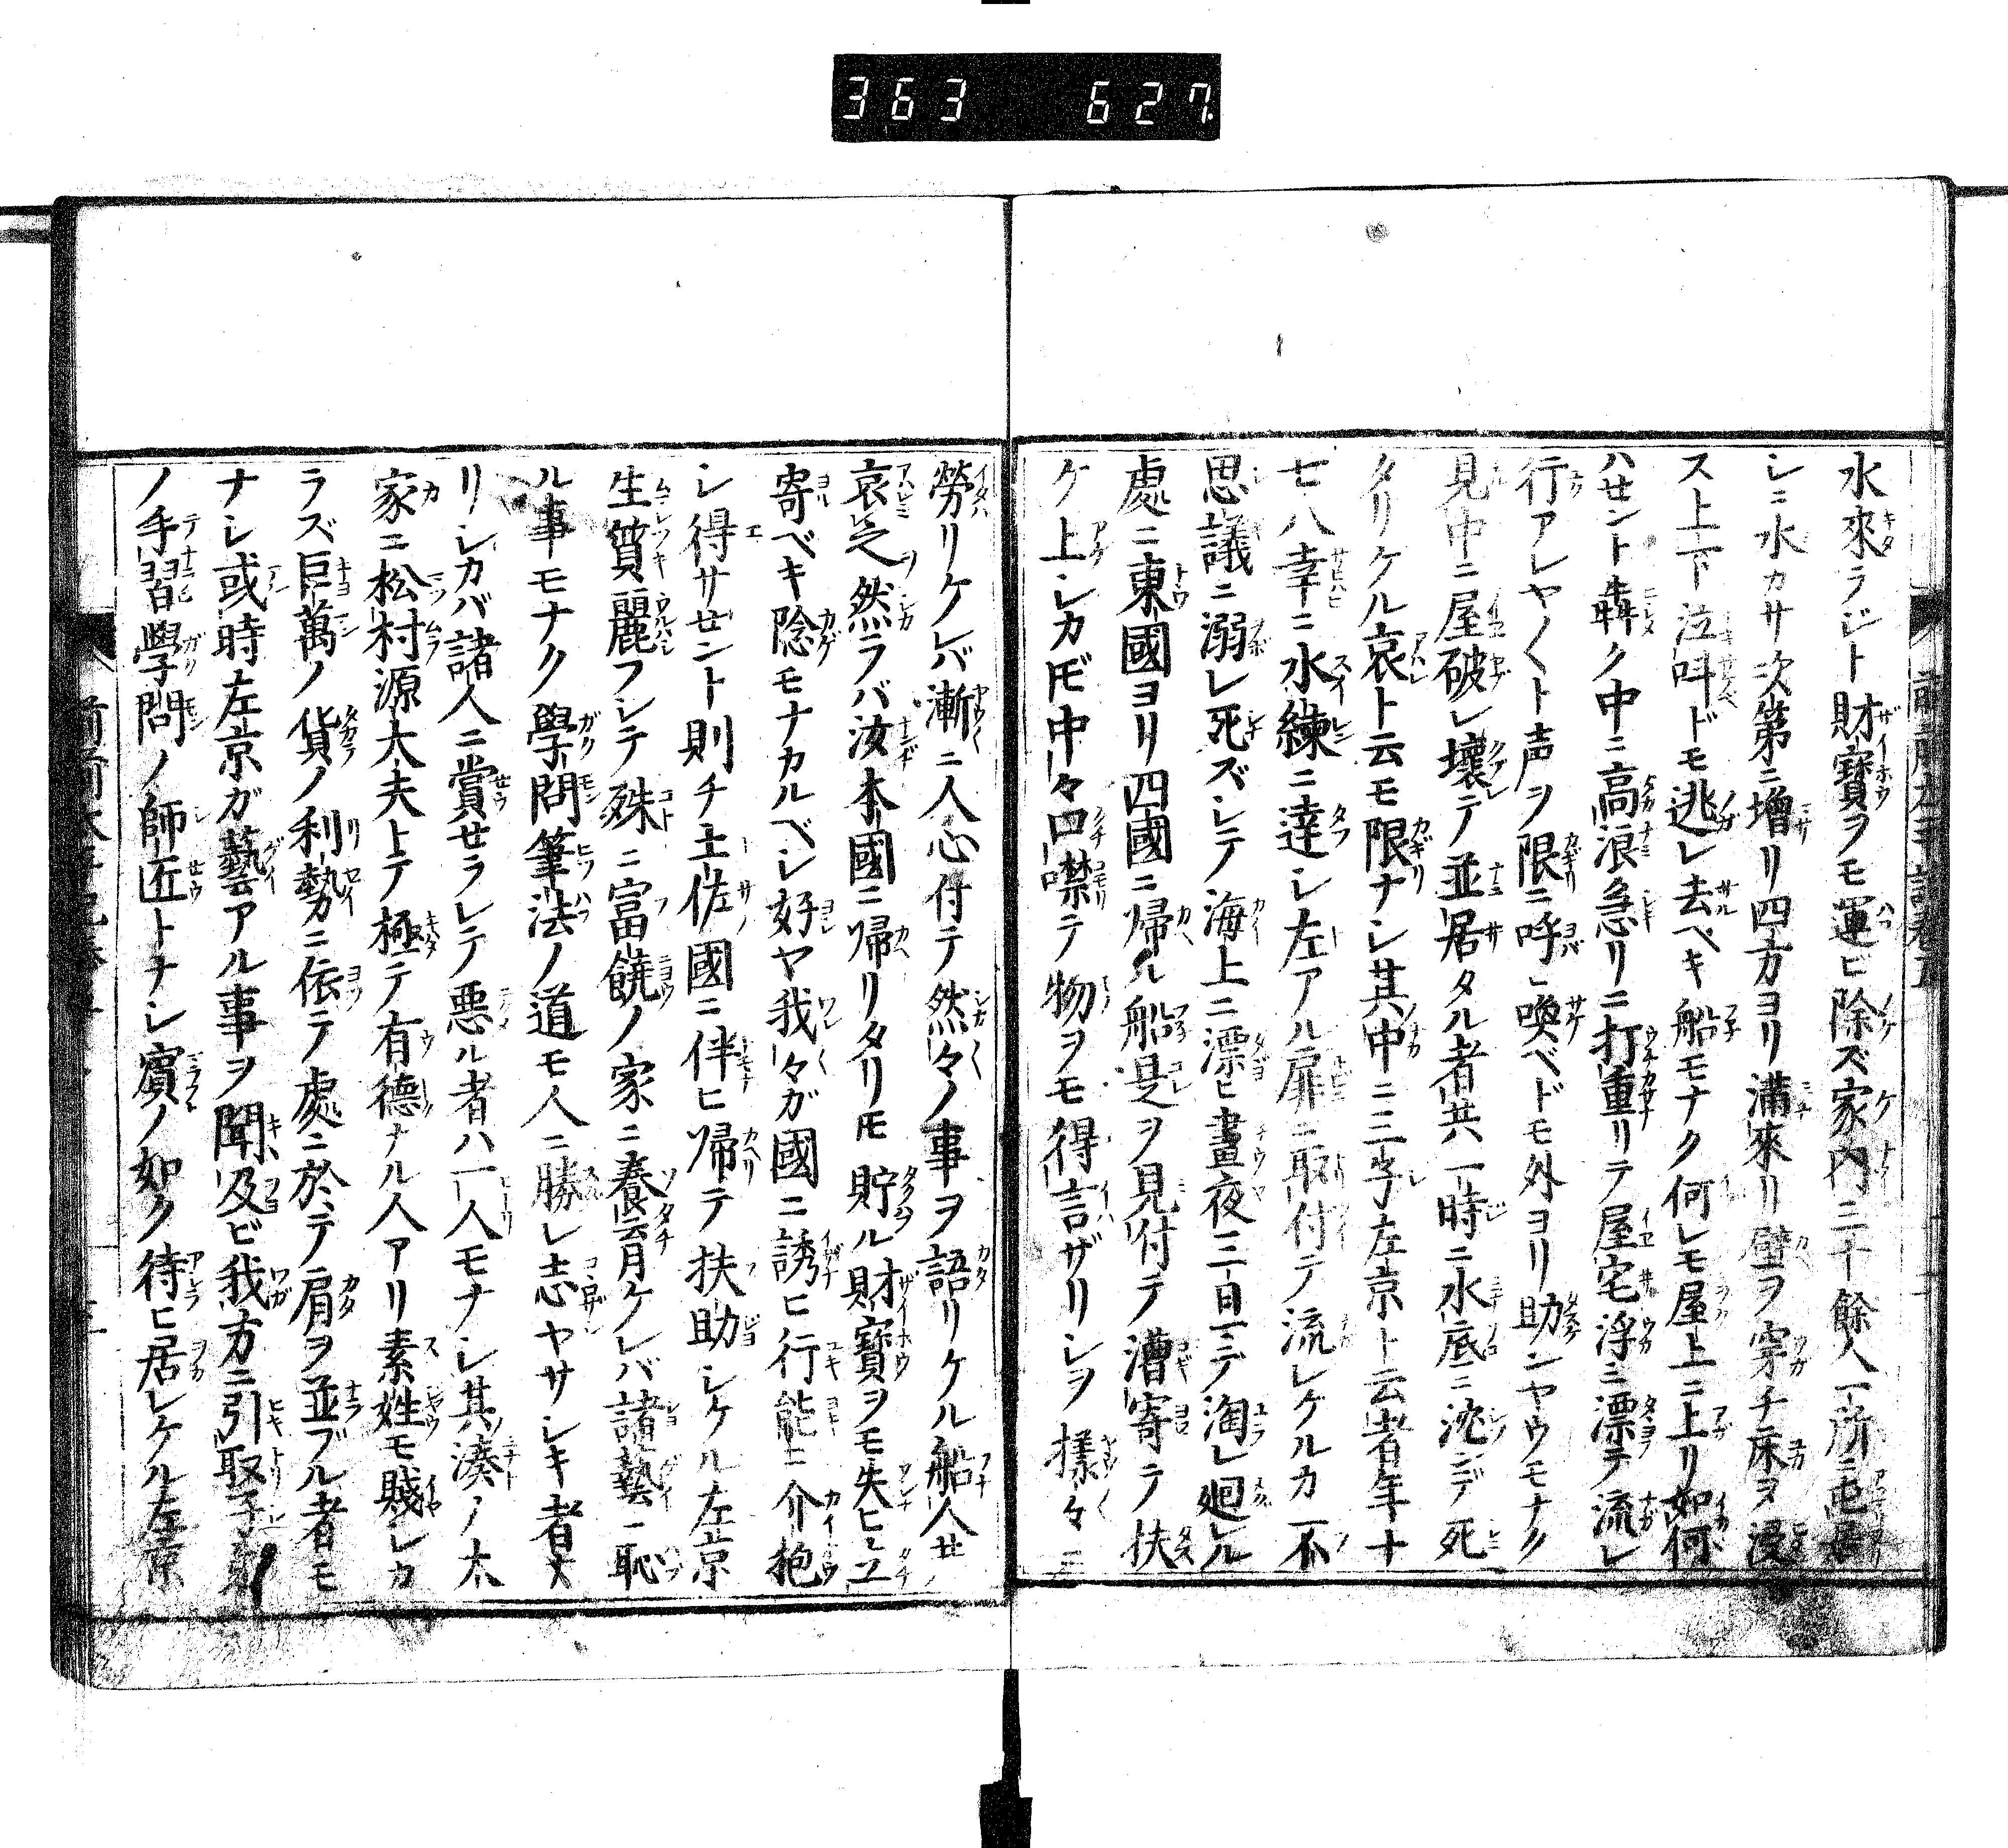 363 627
水來ラジト財寶ヲモ運ビ除ズ家内三十餘人一所ニ屯居
シニ水カサ次第ニ増リ四方ヨリ滿來リ壁ヲ穿チ床ヲ浸
ス上下泣叫ドモ逃レ去ベキ船モナク何レモ屋上ニ上リ如何
ハセント犇ク中ニ高浪急リニ打重リテ屋宅浮ミ漂テ流レ
行アレヤ〱ト声ヲ限ニ呼ヒ喚ベドモ外ヨリ助ンヤウモナク
見中ニ屋破レ壞テ並居タル者共一時ニ水底ニ沈デ死
タリケル哀ト云モ限ナシ其中ニ三字左京ト云者年十
七八幸ニ水練ニ達シ左アル扉ニ取付テ流レケルカ不
思議ニ溺レ死ズシテ海上ニ漂ヒ晝夜三日ニテ淘レ廻ル
處ニ東國ヨリ四國ニ帰ル船是ヲ見付テ漕寄テ扶
ケ上シカ𪜈中々口噤テ物ヲモ得言ザリシヲ樣々ニ
勞リケレバ漸ニ人心付テ然々ノ事ヲ語リケル船人
哀之然ラバ汝本國ニ帰リタリ𪜈貯ル財寶ヲモ失ヒヌ
寄ベキ陰モナカルベシ好ヤ我々ガ國ニ誘ヒ行能ニ介抱
シ得サセント則チ土佐國ニ伴ヒ帰テ扶助シケル左京
生質麗フシテ殊ニ富饒ノ家ニ養育ケレバ諸藝ニ恥
ル事モナク學問筆法ノ道モ人ニ勝レ志ヤサシキ者ナ
リシカバ諸人ニ賞セラレテ悪ル者ハ一人モナシ其湊ノ太
家ニ松村源大夫トテ極テ有德ナル人アリ素姓モ賤シカ
ラズ巨萬ノ貨ノ利勢ニ依テ處ニ於テ肩ヲ並ブル者モ
ナシ或時左京ガ藝アル事ヲ聞及ビ我方ニ引取子
ノ手習學問ノ師匠トナシ賓ノ如ク待ヒ居シケル左京